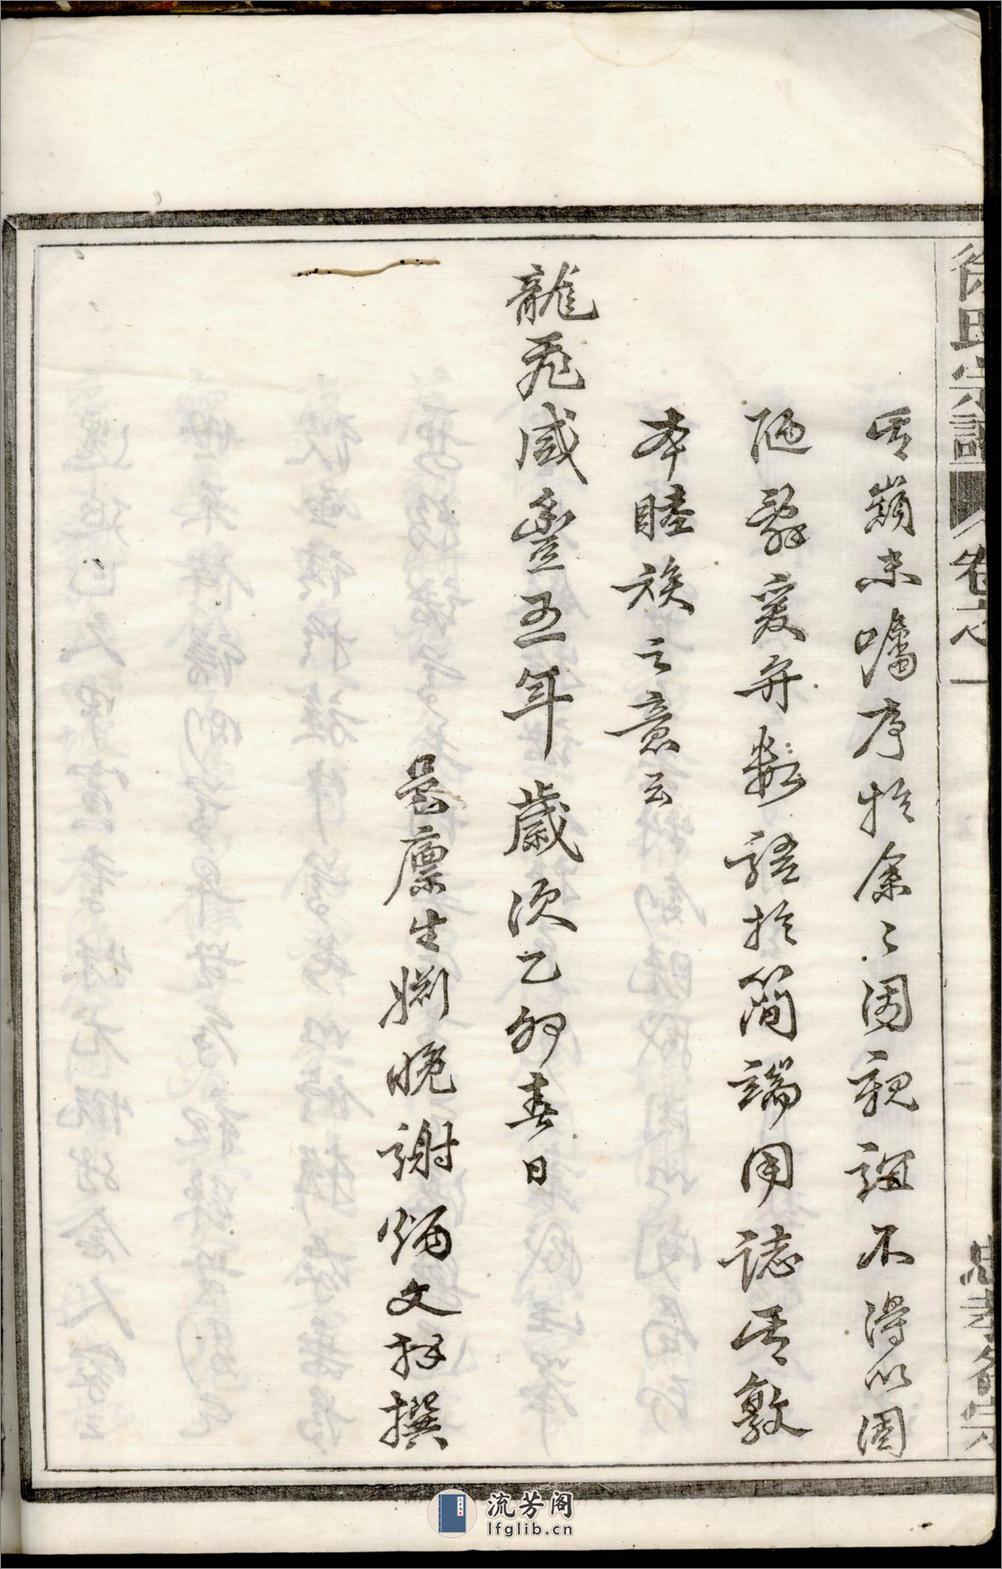 徐氏宗譜 卷之一
其巔末囑序於余〻固親誼不得以固
陋辭爰弁數語於簡端用誌其敦
本睦族之意云
龍飛咸豐五年歲次乙卯春日
邑廩生姻晚謝炳文拜撰
流芳阁
lfglib.cn